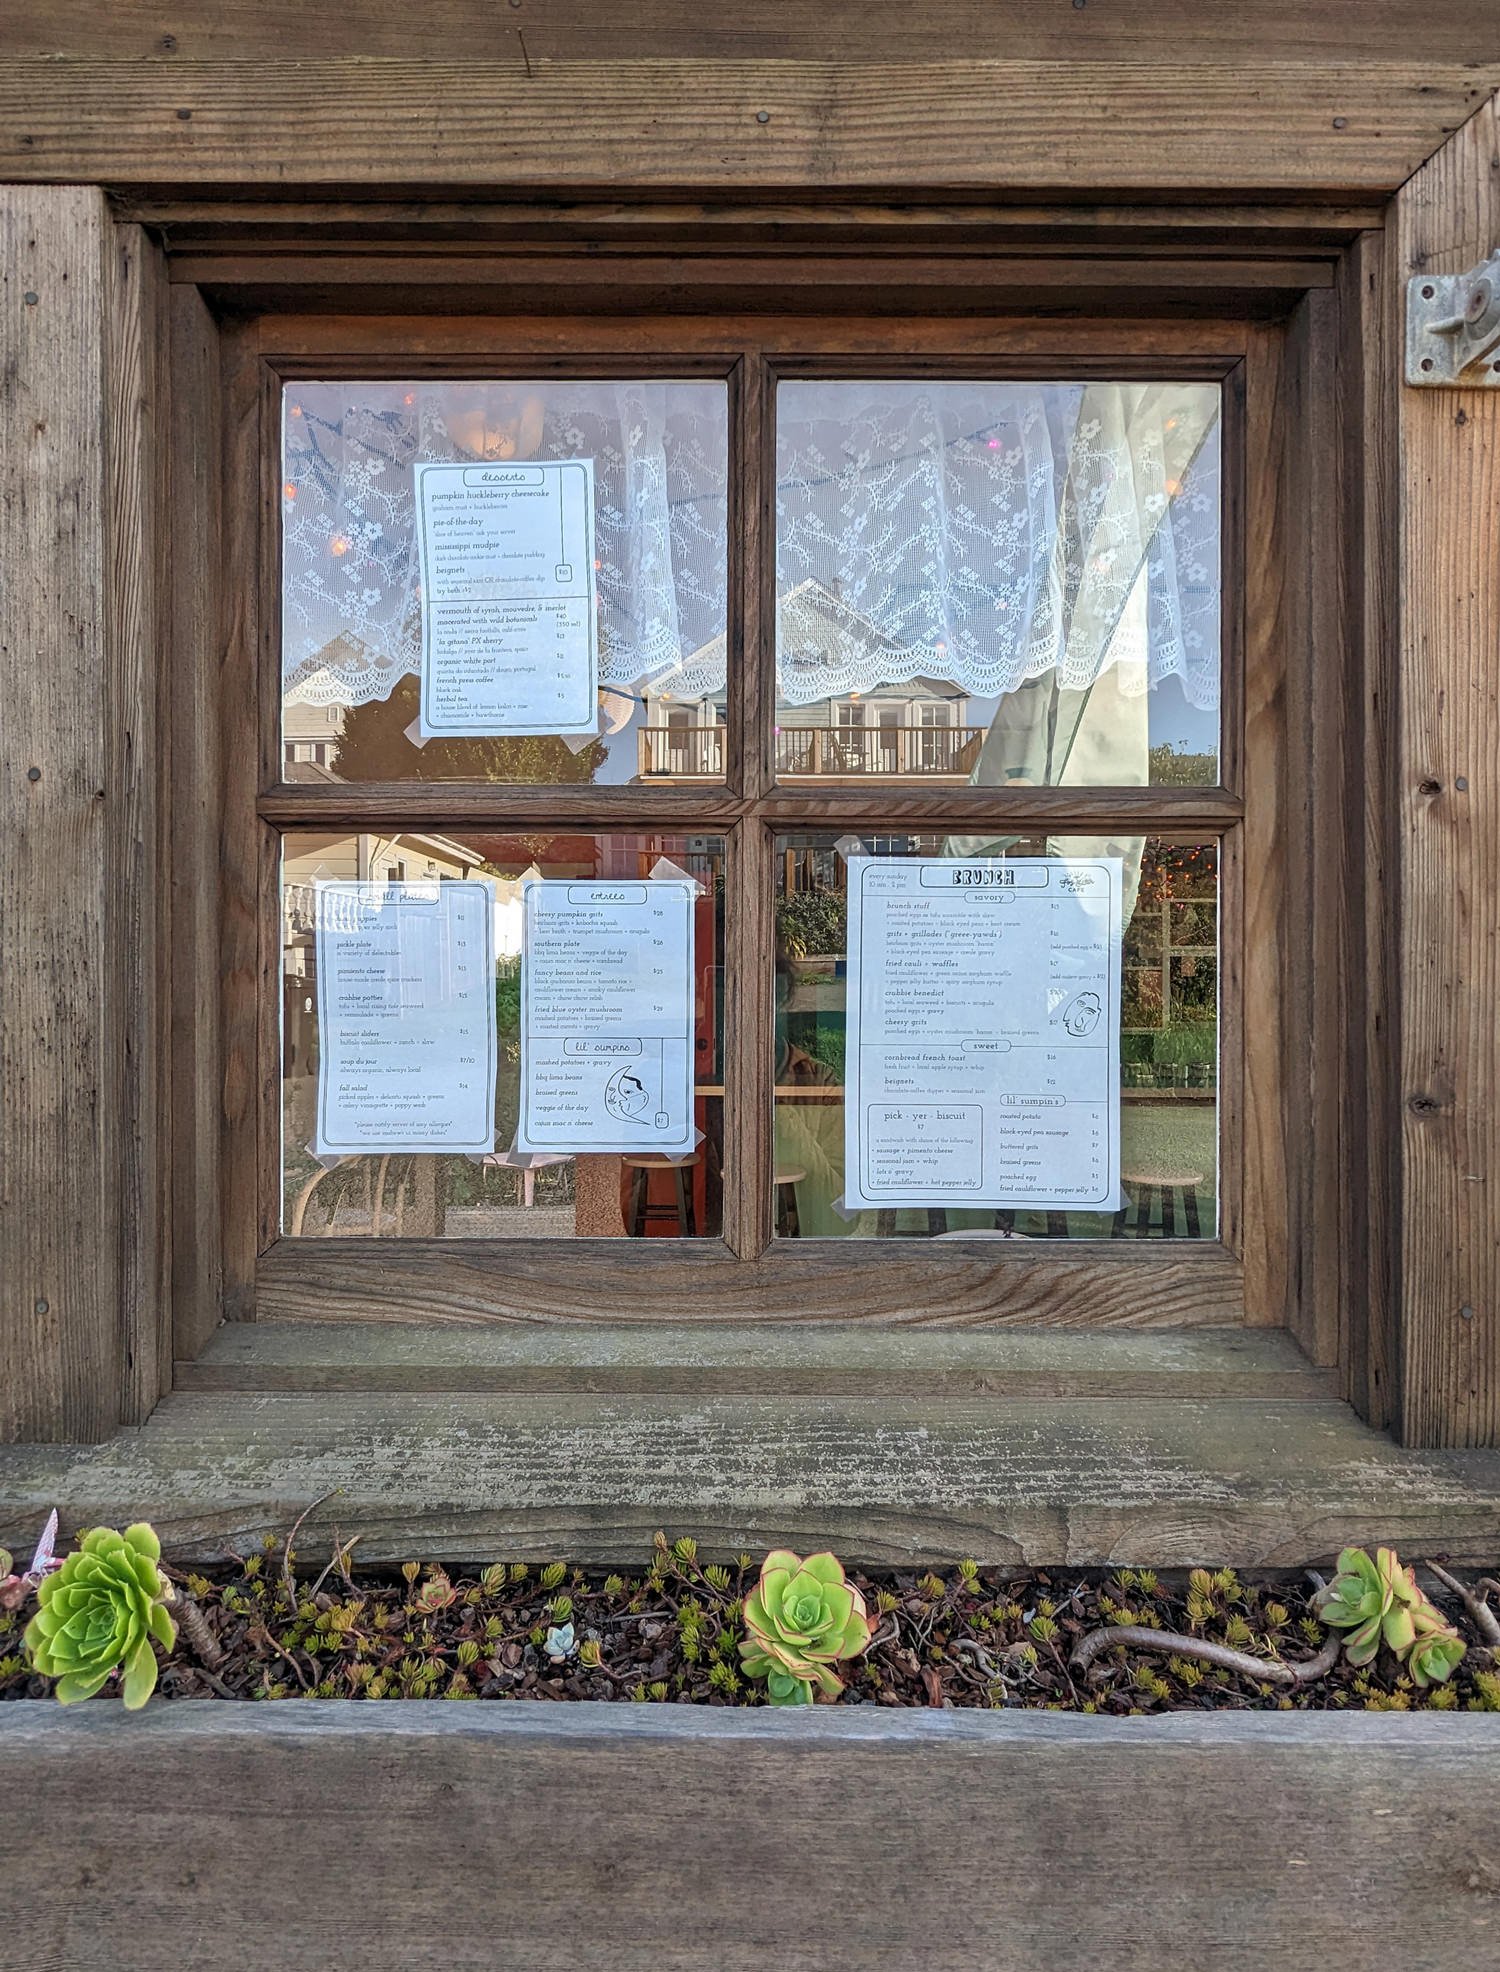 desserts
pumpkin huckleberry cheesecake
graham crust + huckleberries
pie-of-the-day
slice of heaven! ask your server
mississippi mudpie
dark chocolate-cookie crust + chocolate pudding
beignets
with seasonal jam OR chocolate-coffee dip
try both +$2
$10
vermouth of syrah, mouvedre, & merlot
macerated with wild botanicals $40
(350 ml)
"la gitana" PX sherry $13
hidalgo // jerez de la frontera, spain
organic white port $11
quinta do infantado // douro, portugal
french press coffee
black oak
herbal tea $5
a house blend of lemon balm + rose
+ chamomile + hawthorne
small plates
$11
pickle plate $13
a variety of delectables
pimiento cheese $13
house-made creole spice crackers
crabbie patties $15
tofu + local rising tide seaweed
+ remoulade + greens
biscuit sliders $15
buffalo cauliflower + ranch + slaw
soup du jour $7/10
always organic, always local
fall salad $14
picked apples + delicata squash + greens
+ celery vinaigrette + poppy seeds
*please notify server of any allergies*
*we use cashews in many dishes*
entrées
cheesy pumpkin grits $28
heirloom grits + kabocha squash
+ leek broth + trumpet mushroom + arugula
southern plate $26
bbq lima beans + veggie of the day
+ cajun mac n' cheese + cornbread
fancy beans and rice $25
black garbanzo beans + tomato rice +
cauliflower cream + smoky cauliflower
cream + chow chow relish
fried blue oyster mushroom $29
mashed potatoes + braised greens
+ roasted carrots + gravy
lil' sumpins
mashed potatoes + gravy
bbq lima beans
braised greens
veggie of the day
cajun mac n' cheese
$7
every sunday
10 am - 2 pm
BRUNCH
CAFE
savory
brunch stuff $15
poached eggs or tofu scramble with slaw
+ roasted potatoes + black eyed peas + beet cream
grits + grillades ("greee-yawds")
heirloom grits + oyster mushroom "bacon"
+ black-eyed pea sausage + creole gravy
(add poached egg + $3)
fried cauli + waffles $17
fried cauliflower + green onion sorghum waffle
+ pepper jelly butter + spicy sorghum syrup
crabbie benedict
tofu + local seaweed + biscuits + arugula
poached eggs + gravy
cheesy grits $17
poached eggs + oyster mushroom "bacon" + braised greens
sweet
cornbread french toast $16
fresh fruit + local apple syrup + whip
beignets $12
chocolate-coffee dipper + seasonal jam
pick - yer - biscuit
$7
a sandwich with choice of the following
+ sausage + pimento cheese
+ seasonal jam + whip
+ lots o' gravy
+ fried cauliflower + hot pepper jelly
lil' sumpin's
roasted potato $6
black-eyed pea sausage $6
buttered grits $7
braised greens $6
poached egg $3
fried cauliflower + pepper jelly $6